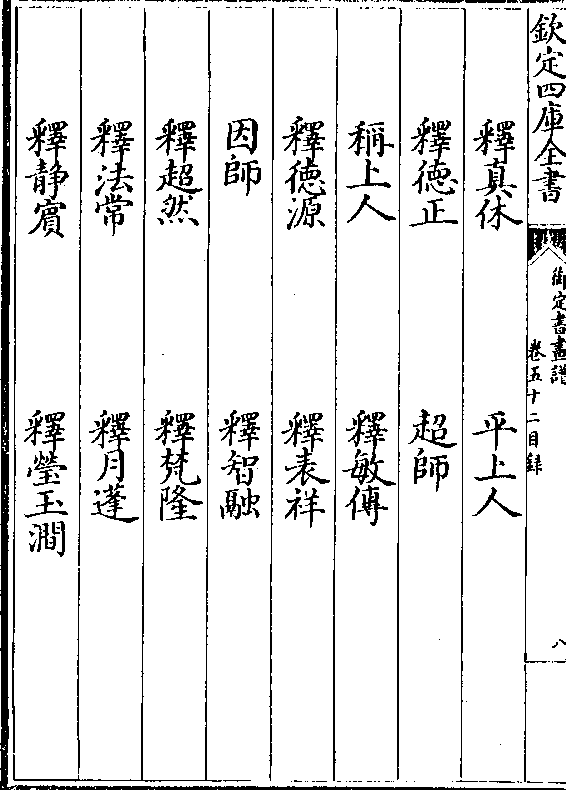 欽定四庫全書
御定書畫譜
卷五十二目録
八
釋真休 平上人
釋德正 超師
稱上人 釋敏傳
釋德源 釋表祥
因師 釋智融
釋超然 釋梵隆
釋法常 釋月蓬
釋靜賓 釋瑩玉澗